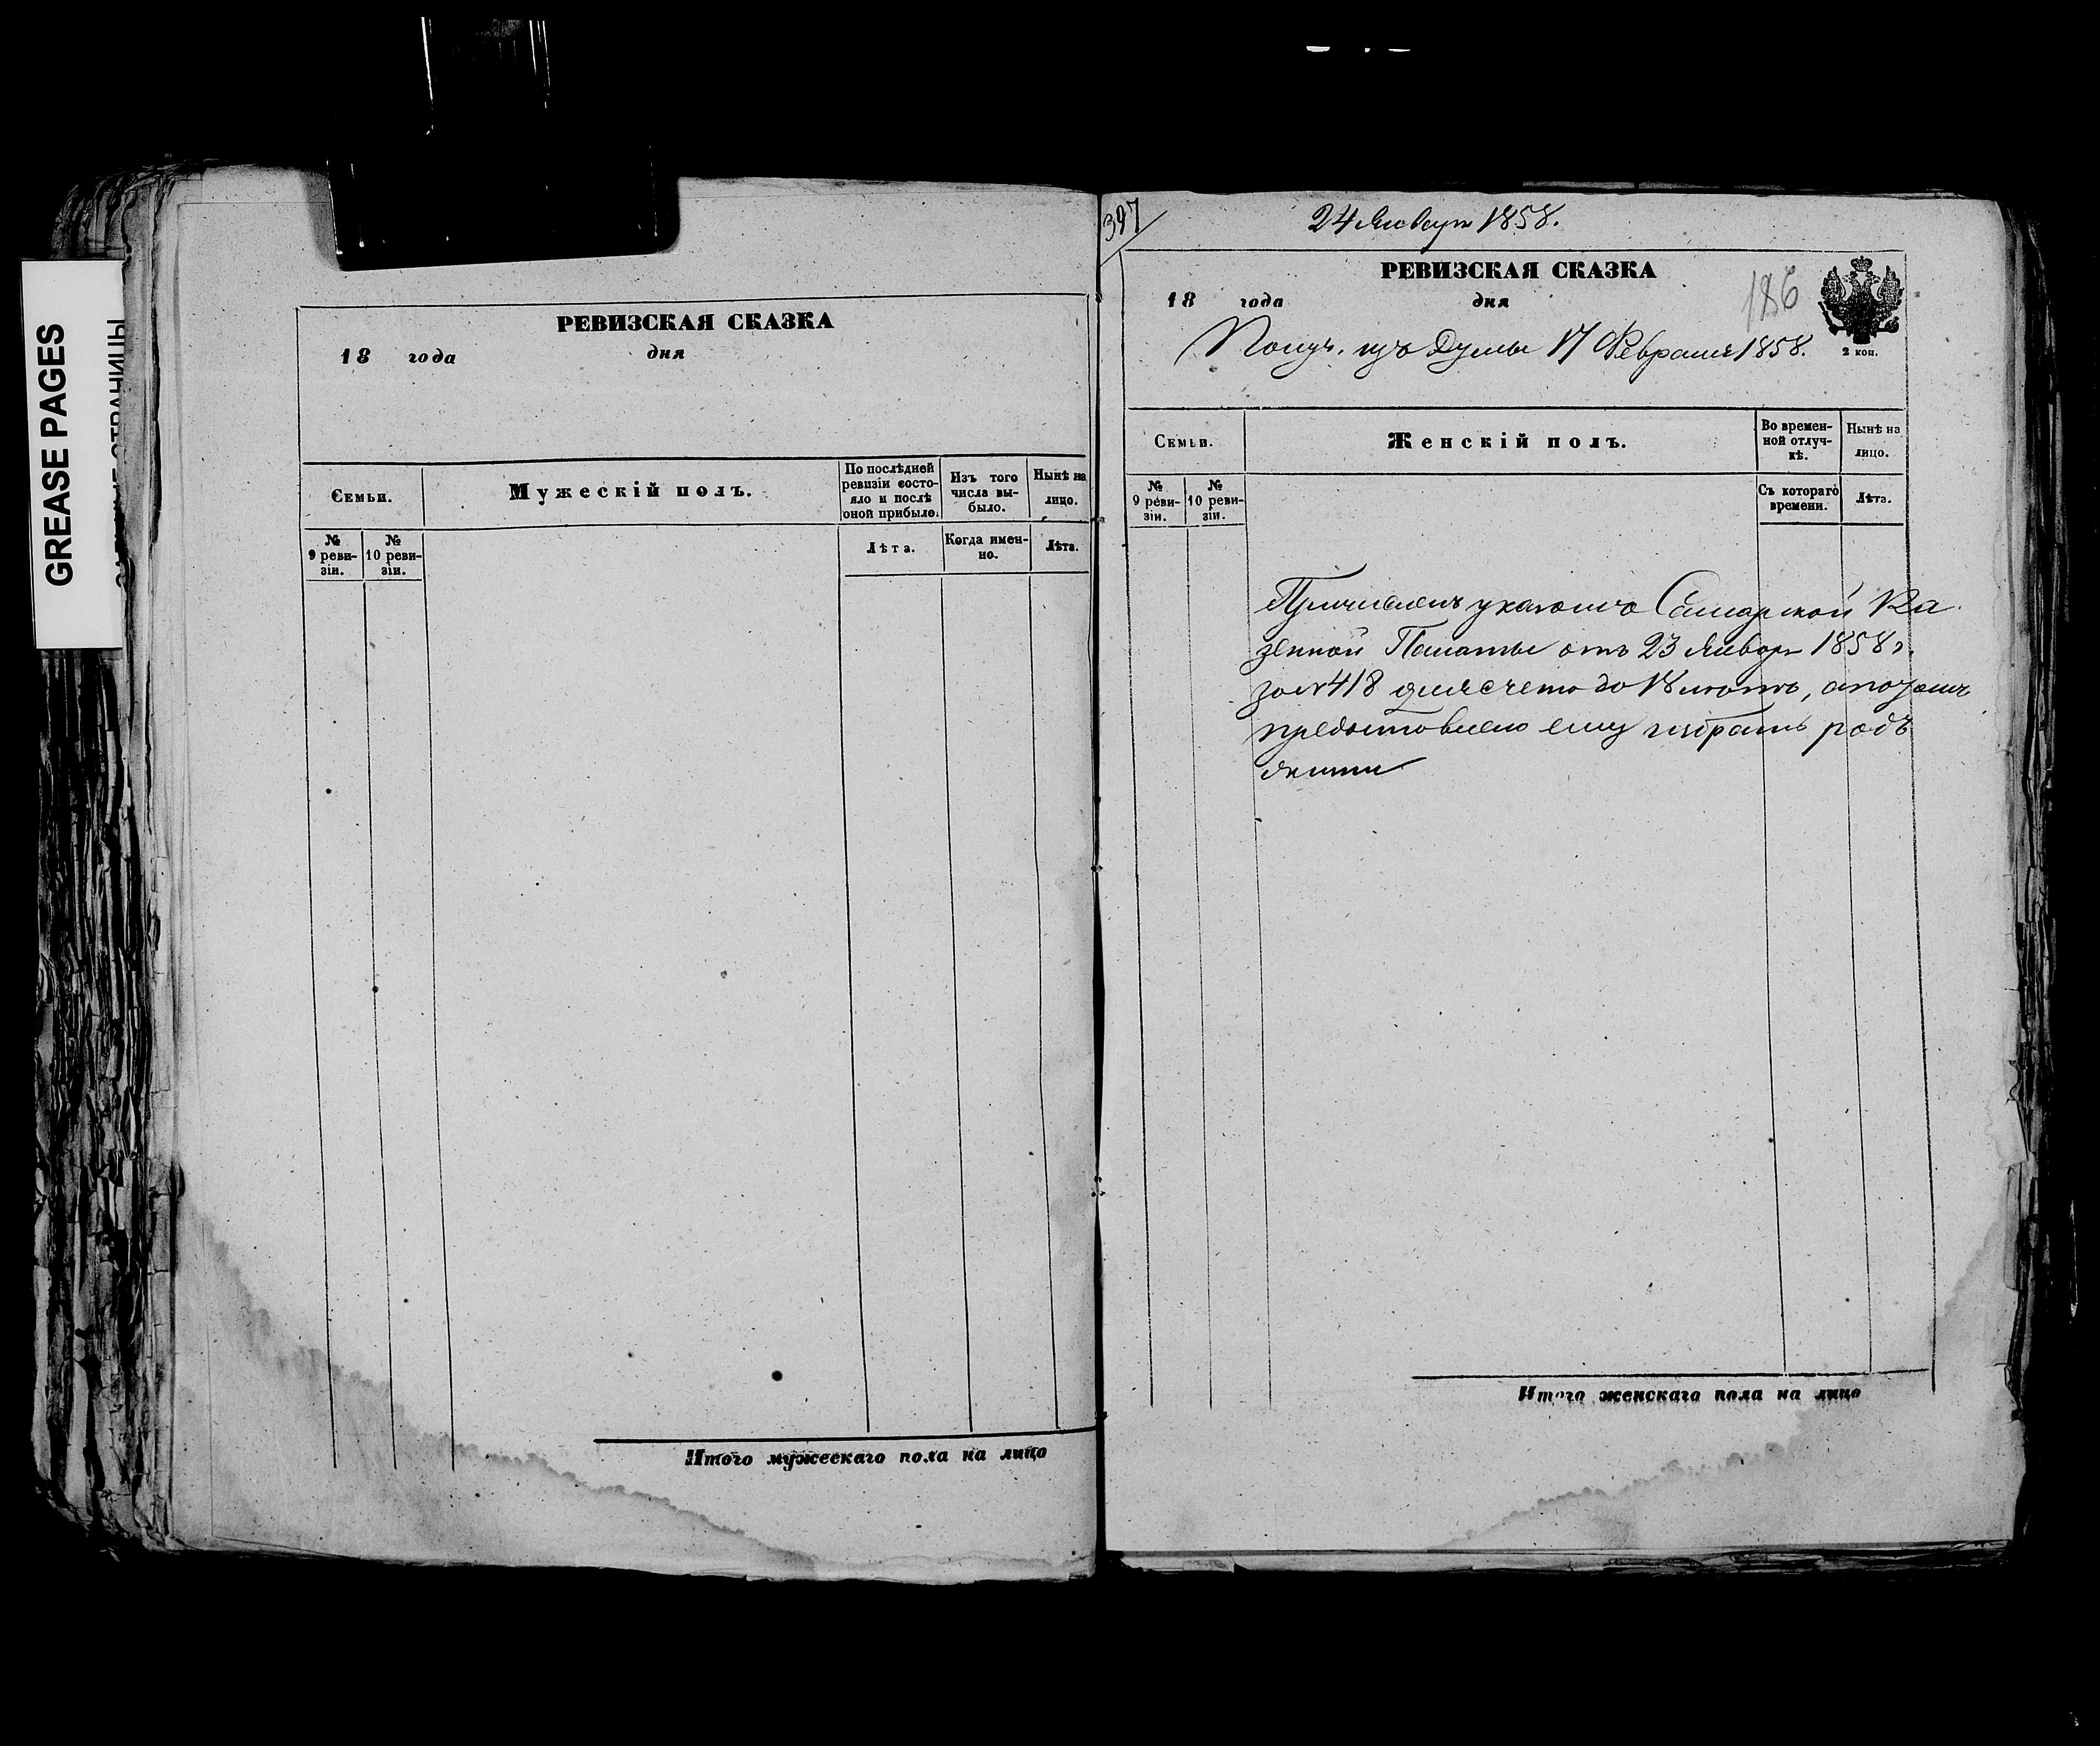 GREASE PAGES
РЕВИЗСКАЯ СКАЗКА
18 года дня
Семьи.
Мужескій полъ.
По послѣдней ревизіи состо-
яло и послѣ
оной прибыло.
Изъ того
числа вы-
было.
Нынѣ на
лицо.
№
9 реви-
зіи.
№
10 реви-
зіи.
Лѣта.
Когда имен-
но.
Лѣта.
Итого мужескаго пола на лицо
397
24 Января 1858.
РЕВИЗСКАЯ СКАЗКА
18 года дня
186
2 коп.
Получ. изъ Думы 17 Февраля 1858.
Семьи.
Женскій полъ.
Во времен-
ной отлуч-
кѣ.
Нынѣ на
лицо.
№
9 реви-
зіи.
№
10 реви-
зіи.
Съ котораго
времени.
Лѣта.
Причисленъ указомъ Самарской Ка
зенной Палаты отъ 23 Января 1858 г.
за № 418 для счета до 18 лѣтъ, а потомъ
предоставлено ему избрать родъ
жизни
Итого женскаго пола на лицо